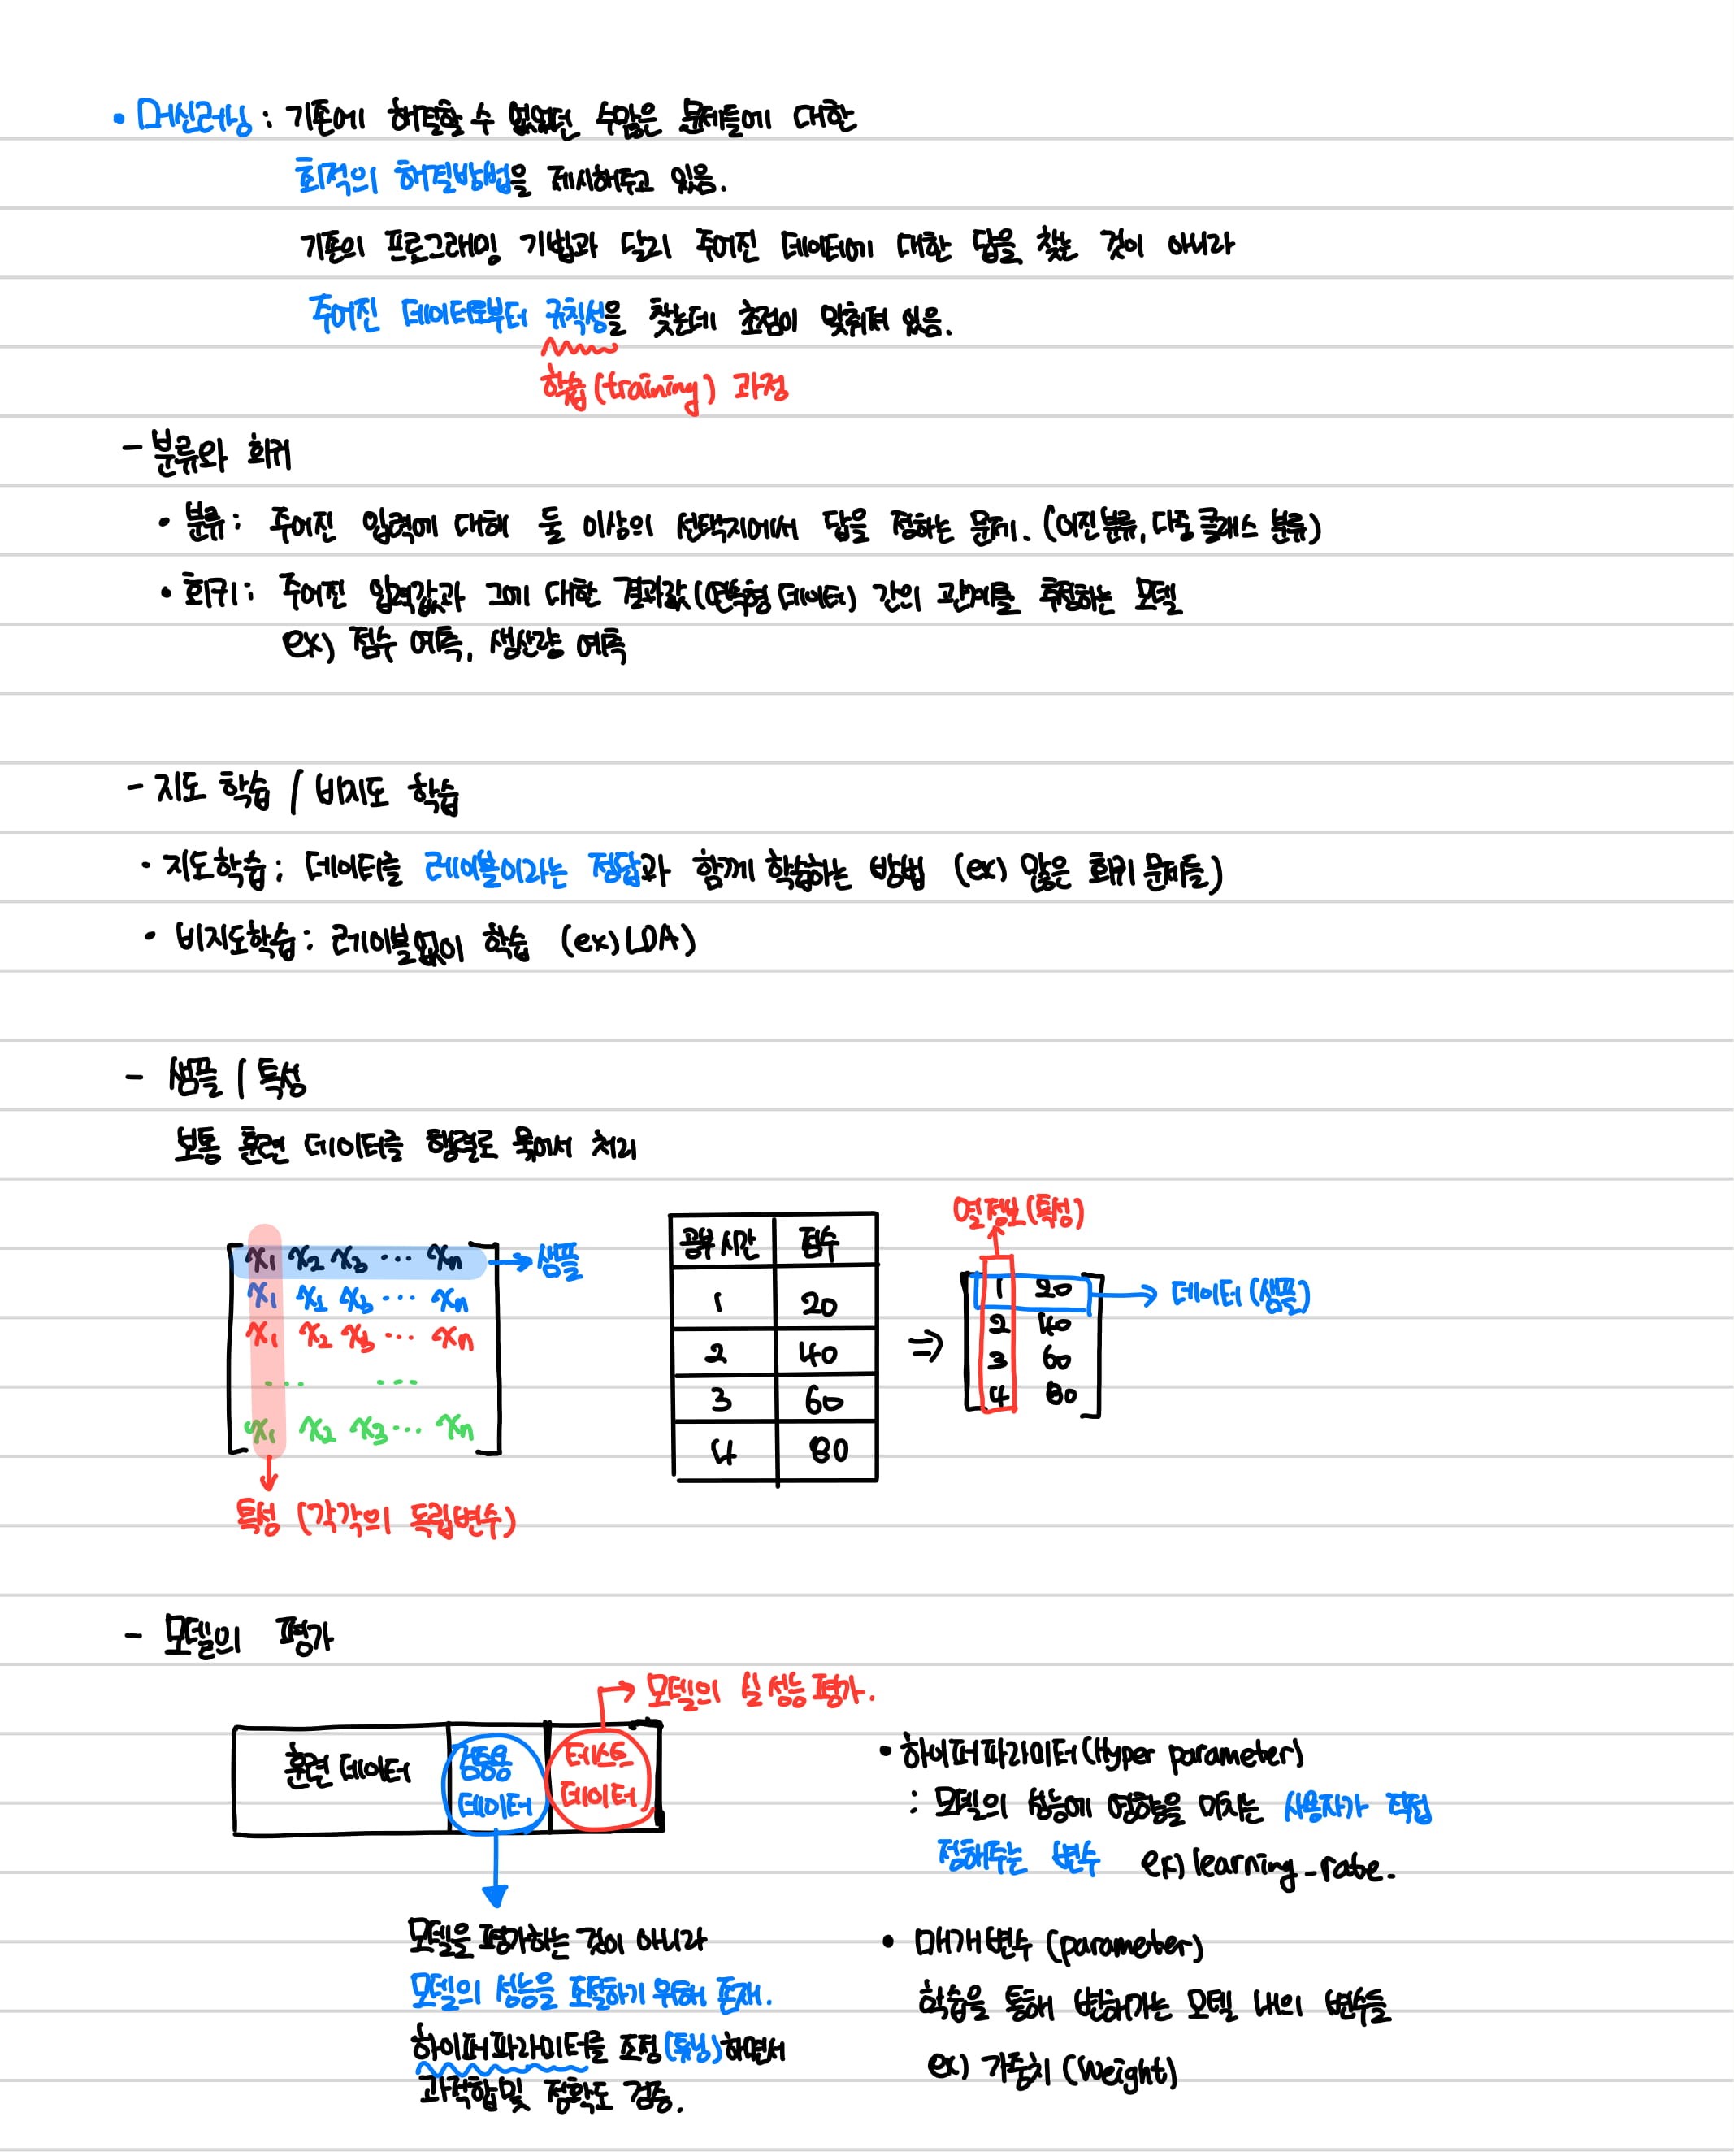 • 머신러닝 : 기존에 해결할 수 없었던 수많은 문제들에 대한
최적의 해결방법을 제시해주고 있음.
기존의 프로그래밍 기법과 달리 주어진 데이터에 대한 답을 찾는 것이 아니라
주어진 데이터로부터 규칙성을 찾는데 초점이 맞춰져 있음.
학습(training) 과정
- 분류와 회귀
• 분류 : 주어진 입력에 대해 둘 이상의 선택지에서 답을 정하는 문제. (이진 분류, 다중 클래스 분류)
• 회귀 : 주어진 입력값과 그에 대한 결과값(연속형 데이터) 간의 관계를 추정하는 모델
ex) 점수 예측, 생산량 예측
- 지도 학습 / 비지도 학습
• 지도학습 : 데이터를 레이블이라는 정답과 함께 학습하는 방법 (ex) 많은 회귀 문제들)
• 비지도학습 : 레이블없이 학습 (ex) LDA)
- 샘플 / 특성
보통 훈련 데이터를 행렬로 묶어서 처리
x₁ x₂ x₃ ... xₙ → 샘플
x₁ x₂ x₃ ... xₙ
x₁ x₂ x₃ ... xₙ
... ...
x₁ x₂ x₃ ... xₙ
특성 (각각의 독립변수)
공부 시간 점수
1 20
2 40
3 60
4 80
⇒
열 정보(특성)
1 20 → 데이터(샘플)
2 40
3 60
4 80
- 모델의 평가
→ 모델의 실 성능 평가.
훈련 데이터
검증용
데이터
테스트
데이터
모델을 평가하는 것이 아니라
모델의 성능을 조절하기 위해 존재.
하이퍼파라미터를 조정(튜닝)하면서
과적합및 정확도 검증.
• 하이퍼파라미터(Hyper parameter)
: 모델의 성능에 영향을 미치는 사용자가 직접
정해주는 변수 ex) learning_rate.
• 매개변수 (parameter)
학습을 통해 변해가는 모델 내의 변수들
ex) 가중치 (weight)